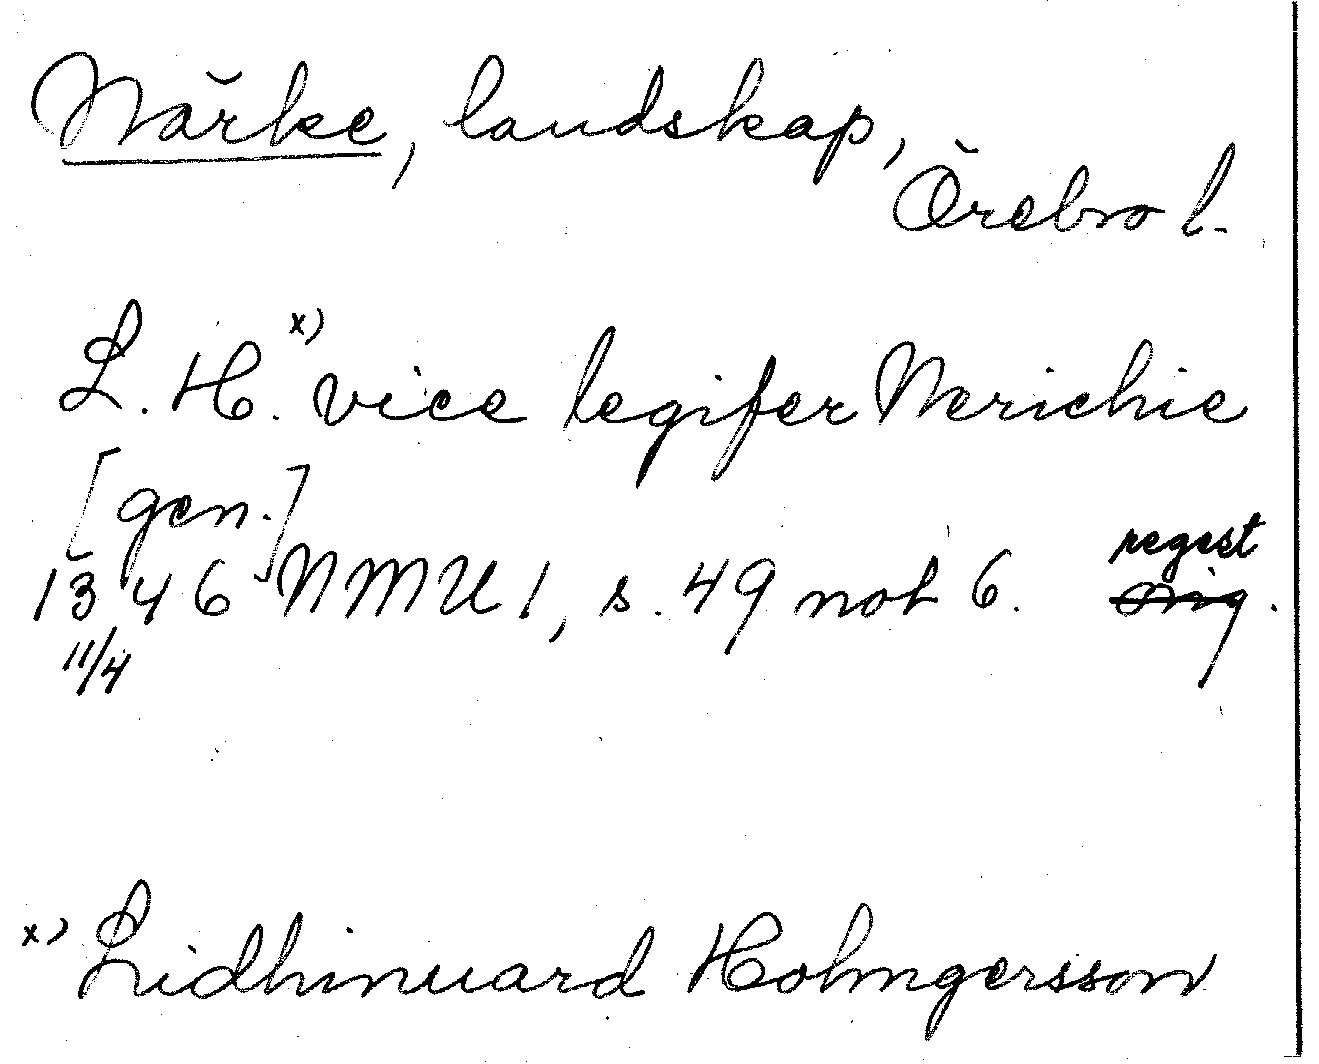 Närke, landskap,
Örebro l.
L. H. x) vice legifer Nerichie
[gen.]
1346 NMU 1, s. 49 not 6. regest
11/4
x) Lidhinuard Holmgersson